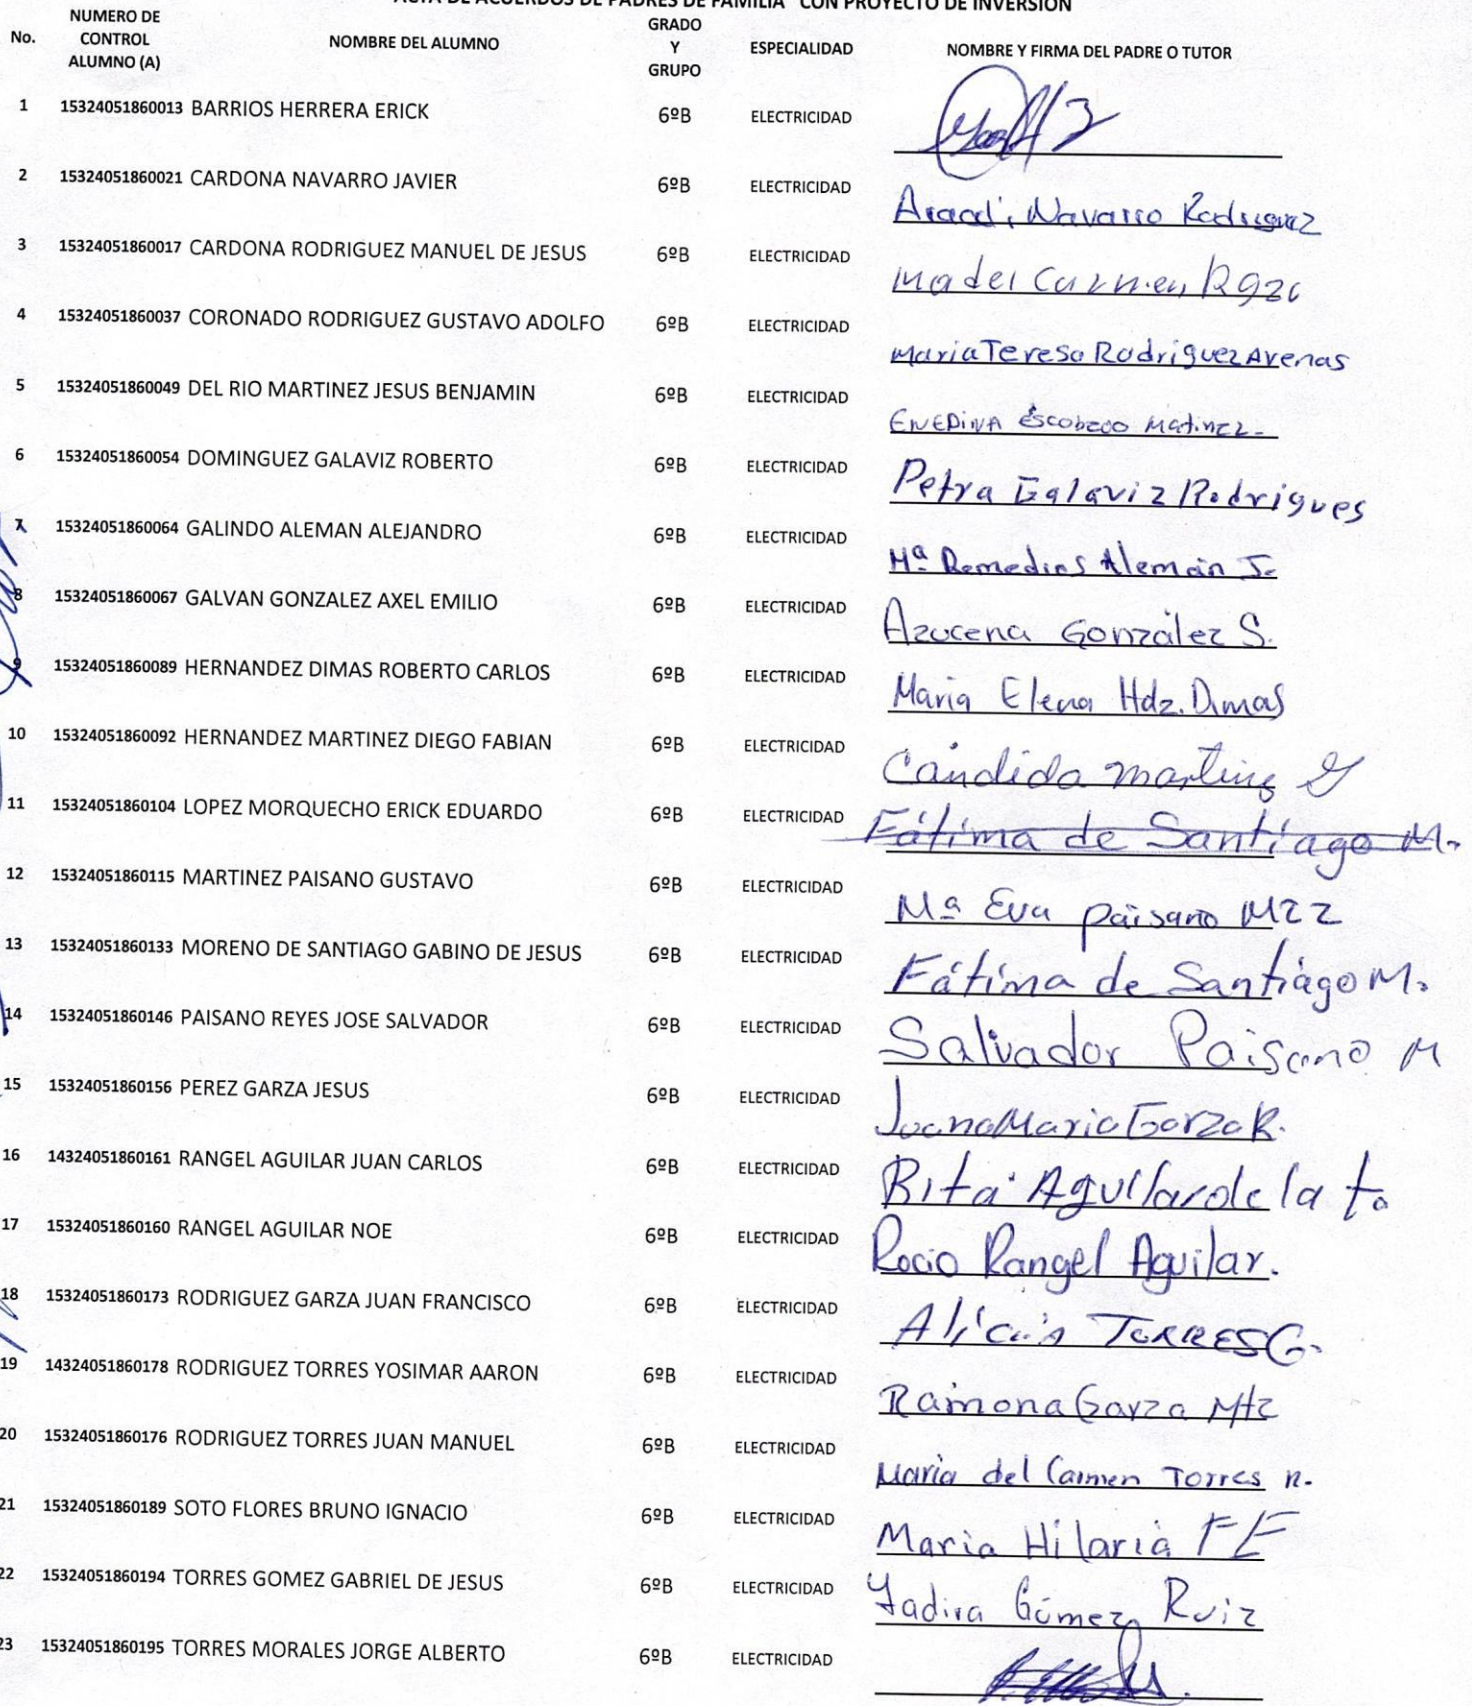 ACTA DE ACUERDOS DE PADRES DE FAMILIA CON PROYECTO DE INVERSION
No. NUMERO DE CONTROL ALUMNO (A) NOMBRE DEL ALUMNO GRADO Y GRUPO ESPECIALIDAD NOMBRE Y FIRMA DEL PADRE O TUTOR
1 15324051860013 BARRIOS HERRERA ERICK 6ºB ELECTRICIDAD
2 15324051860021 CARDONA NAVARRO JAVIER 6ºB ELECTRICIDAD Navarro Rodriguez
3 15324051860017 CARDONA RODRIGUEZ MANUEL DE JESUS 6ºB ELECTRICIDAD Ma del Carmen
4 15324051860037 CORONADO RODRIGUEZ GUSTAVO ADOLFO 6ºB ELECTRICIDAD Maria Teresa Rodriguez Arenas
5 15324051860049 DEL RIO MARTINEZ JESUS BENJAMIN 6ºB ELECTRICIDAD ENEDINA Escobedo Matinez-
6 15324051860054 DOMINGUEZ GALAVIZ ROBERTO 6ºB ELECTRICIDAD Petra Galaviz Rodrigues
7 15324051860064 GALINDO ALEMAN ALEJANDRO 6ºB ELECTRICIDAD Mª Remedios Alemán J.
8 15324051860067 GALVAN GONZALEZ AXEL EMILIO 6ºB ELECTRICIDAD Azucena González S.
9 15324051860089 HERNANDEZ DIMAS ROBERTO CARLOS 6ºB ELECTRICIDAD Maria Elena Hdz. Dimas
10 15324051860092 HERNANDEZ MARTINEZ DIEGO FABIAN 6ºB ELECTRICIDAD Candida
11 15324051860104 LOPEZ MORQUECHO ERICK EDUARDO 6ºB ELECTRICIDAD Fátima de Santiago M.
12 15324051860115 MARTINEZ PAISANO GUSTAVO 6ºB ELECTRICIDAD Mª Eva paisano Mzz
13 15324051860133 MORENO DE SANTIAGO GABINO DE JESUS 6ºB ELECTRICIDAD Fátima de Santiago M.
14 15324051860146 PAISANO REYES JOSE SALVADOR 6ºB ELECTRICIDAD Salvador Paisano M
15 15324051860156 PEREZ GARZA JESUS 6ºB ELECTRICIDAD Juana Maria Garza R.
16 14324051860161 RANGEL AGUILAR JUAN CARLOS 6ºB ELECTRICIDAD Rita Aguilar de la t.
17 15324051860160 RANGEL AGUILAR NOE 6ºB ELECTRICIDAD Rocio Rangel Aguilar.
18 15324051860173 RODRIGUEZ GARZA JUAN FRANCISCO 6ºB ELECTRICIDAD Alicia TORRES G.
19 14324051860178 RODRIGUEZ TORRES YOSIMAR AARON 6ºB ELECTRICIDAD Ramona Garza Mtz
20 15324051860176 RODRIGUEZ TORRES JUAN MANUEL 6ºB ELECTRICIDAD Maria del Carmen Torres R.
21 15324051860189 SOTO FLORES BRUNO IGNACIO 6ºB ELECTRICIDAD Maria Hilaria F E
22 15324051860194 TORRES GOMEZ GABRIEL DE JESUS 6ºB ELECTRICIDAD Yadira Gómez Ruiz
23 15324051860195 TORRES MORALES JORGE ALBERTO 6ºB ELECTRICIDAD